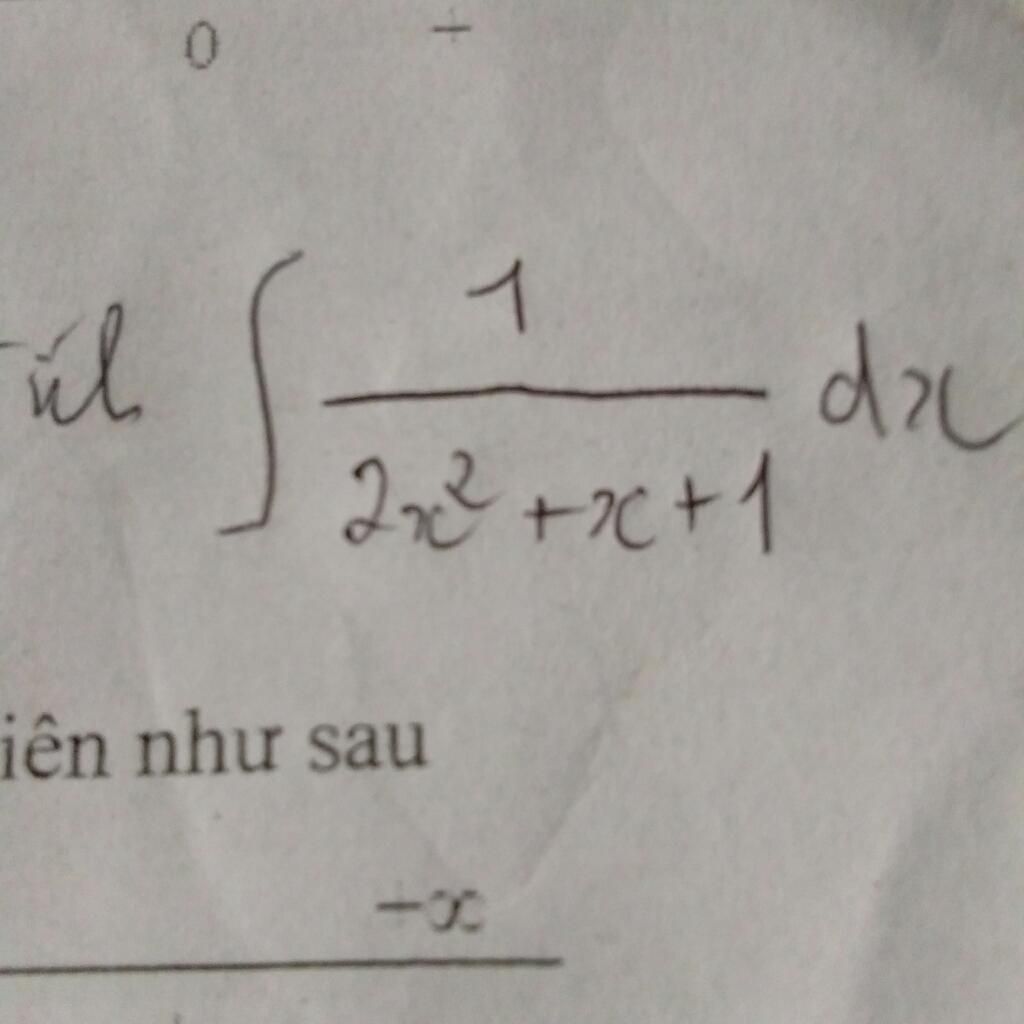 0 +
∫ 1/(2x² + x + 1) dx
iên như sau